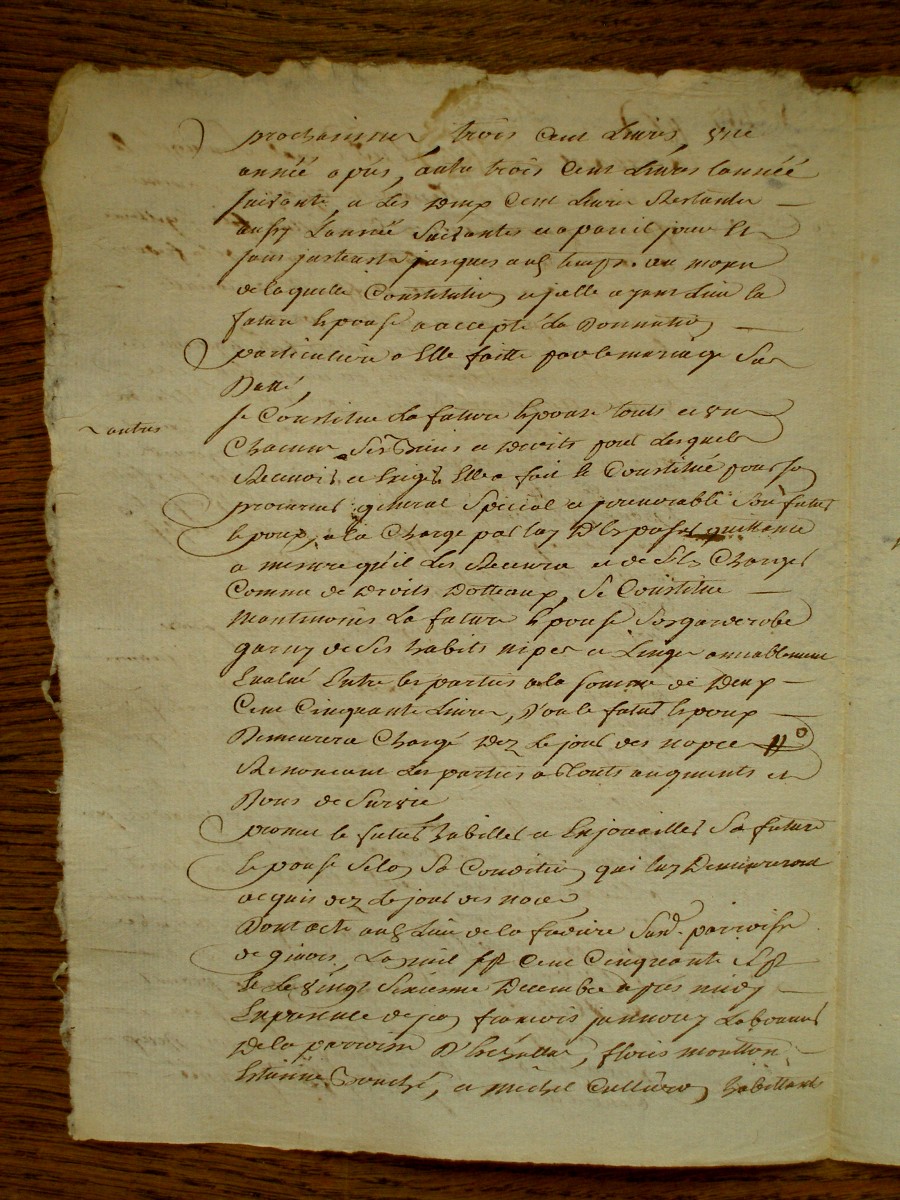 prochaines trois cent Livres, une
année apres, autre trois Cent Livres lannée
suivante, et Les deux Cent Livres Restantes
aussy Lannée Suivantes et a pareil jour Et
sans jusques aux temps. au moyen
de laquelle Constitution ayant Lieu la
future Epouse a accepté La Donnation
particuliere a Elle faitte par le mariage Sus
Datté,
~ autres
Se Constitue La future Epouse touts et un
Chacuns Ses Biens et Droits pour Lesquels
Recevoir et Exiger Elle a fait et Constitué pour son
procureur general Special et irrevocable Son futur
Epoux, a la Charge par luy D'Ex quittance
a mesure qu'il Les Recevra et de Ses Charges
Comme de Droits Dotteaux, Se Constitue
La future Epouse Son garderobe
garny de Ses habits nipes et Linges amiablement
Evalué Entre les parties a la Somme de Deux
Cent Cinquante Livres, Dont le futur Epoux
Demeurera Chargé Dez Le jour des nopces
Renoncent Les parties a touts augments et
Dons de Survie
promet le futur habiller et Enjouailler Sa future
Epouse Selon Sa Condition qui luy Demeureront
acquis dez Le jour des noces
Dont acte au Lieu de la Susd. parroisse
de givors, La mil sept Cent Cinquante Sept
Et Le Vingt Sixieme Decembre apres midy
En presence de Jean françois Laboureur
De la parroisse D'Echallas, floris moutton
Estienne Bouché, et Michel Cullieron habittant